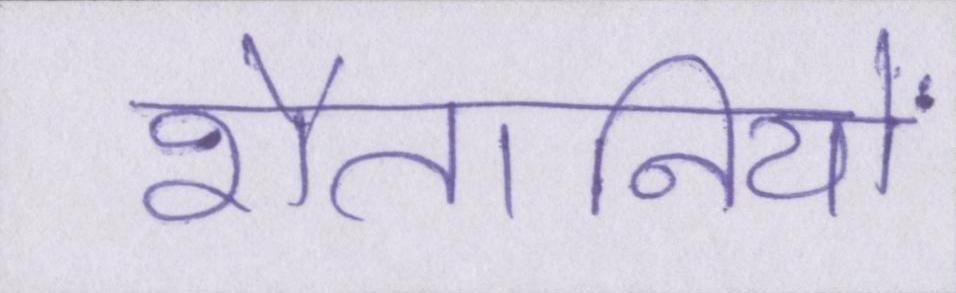 शैतानियों